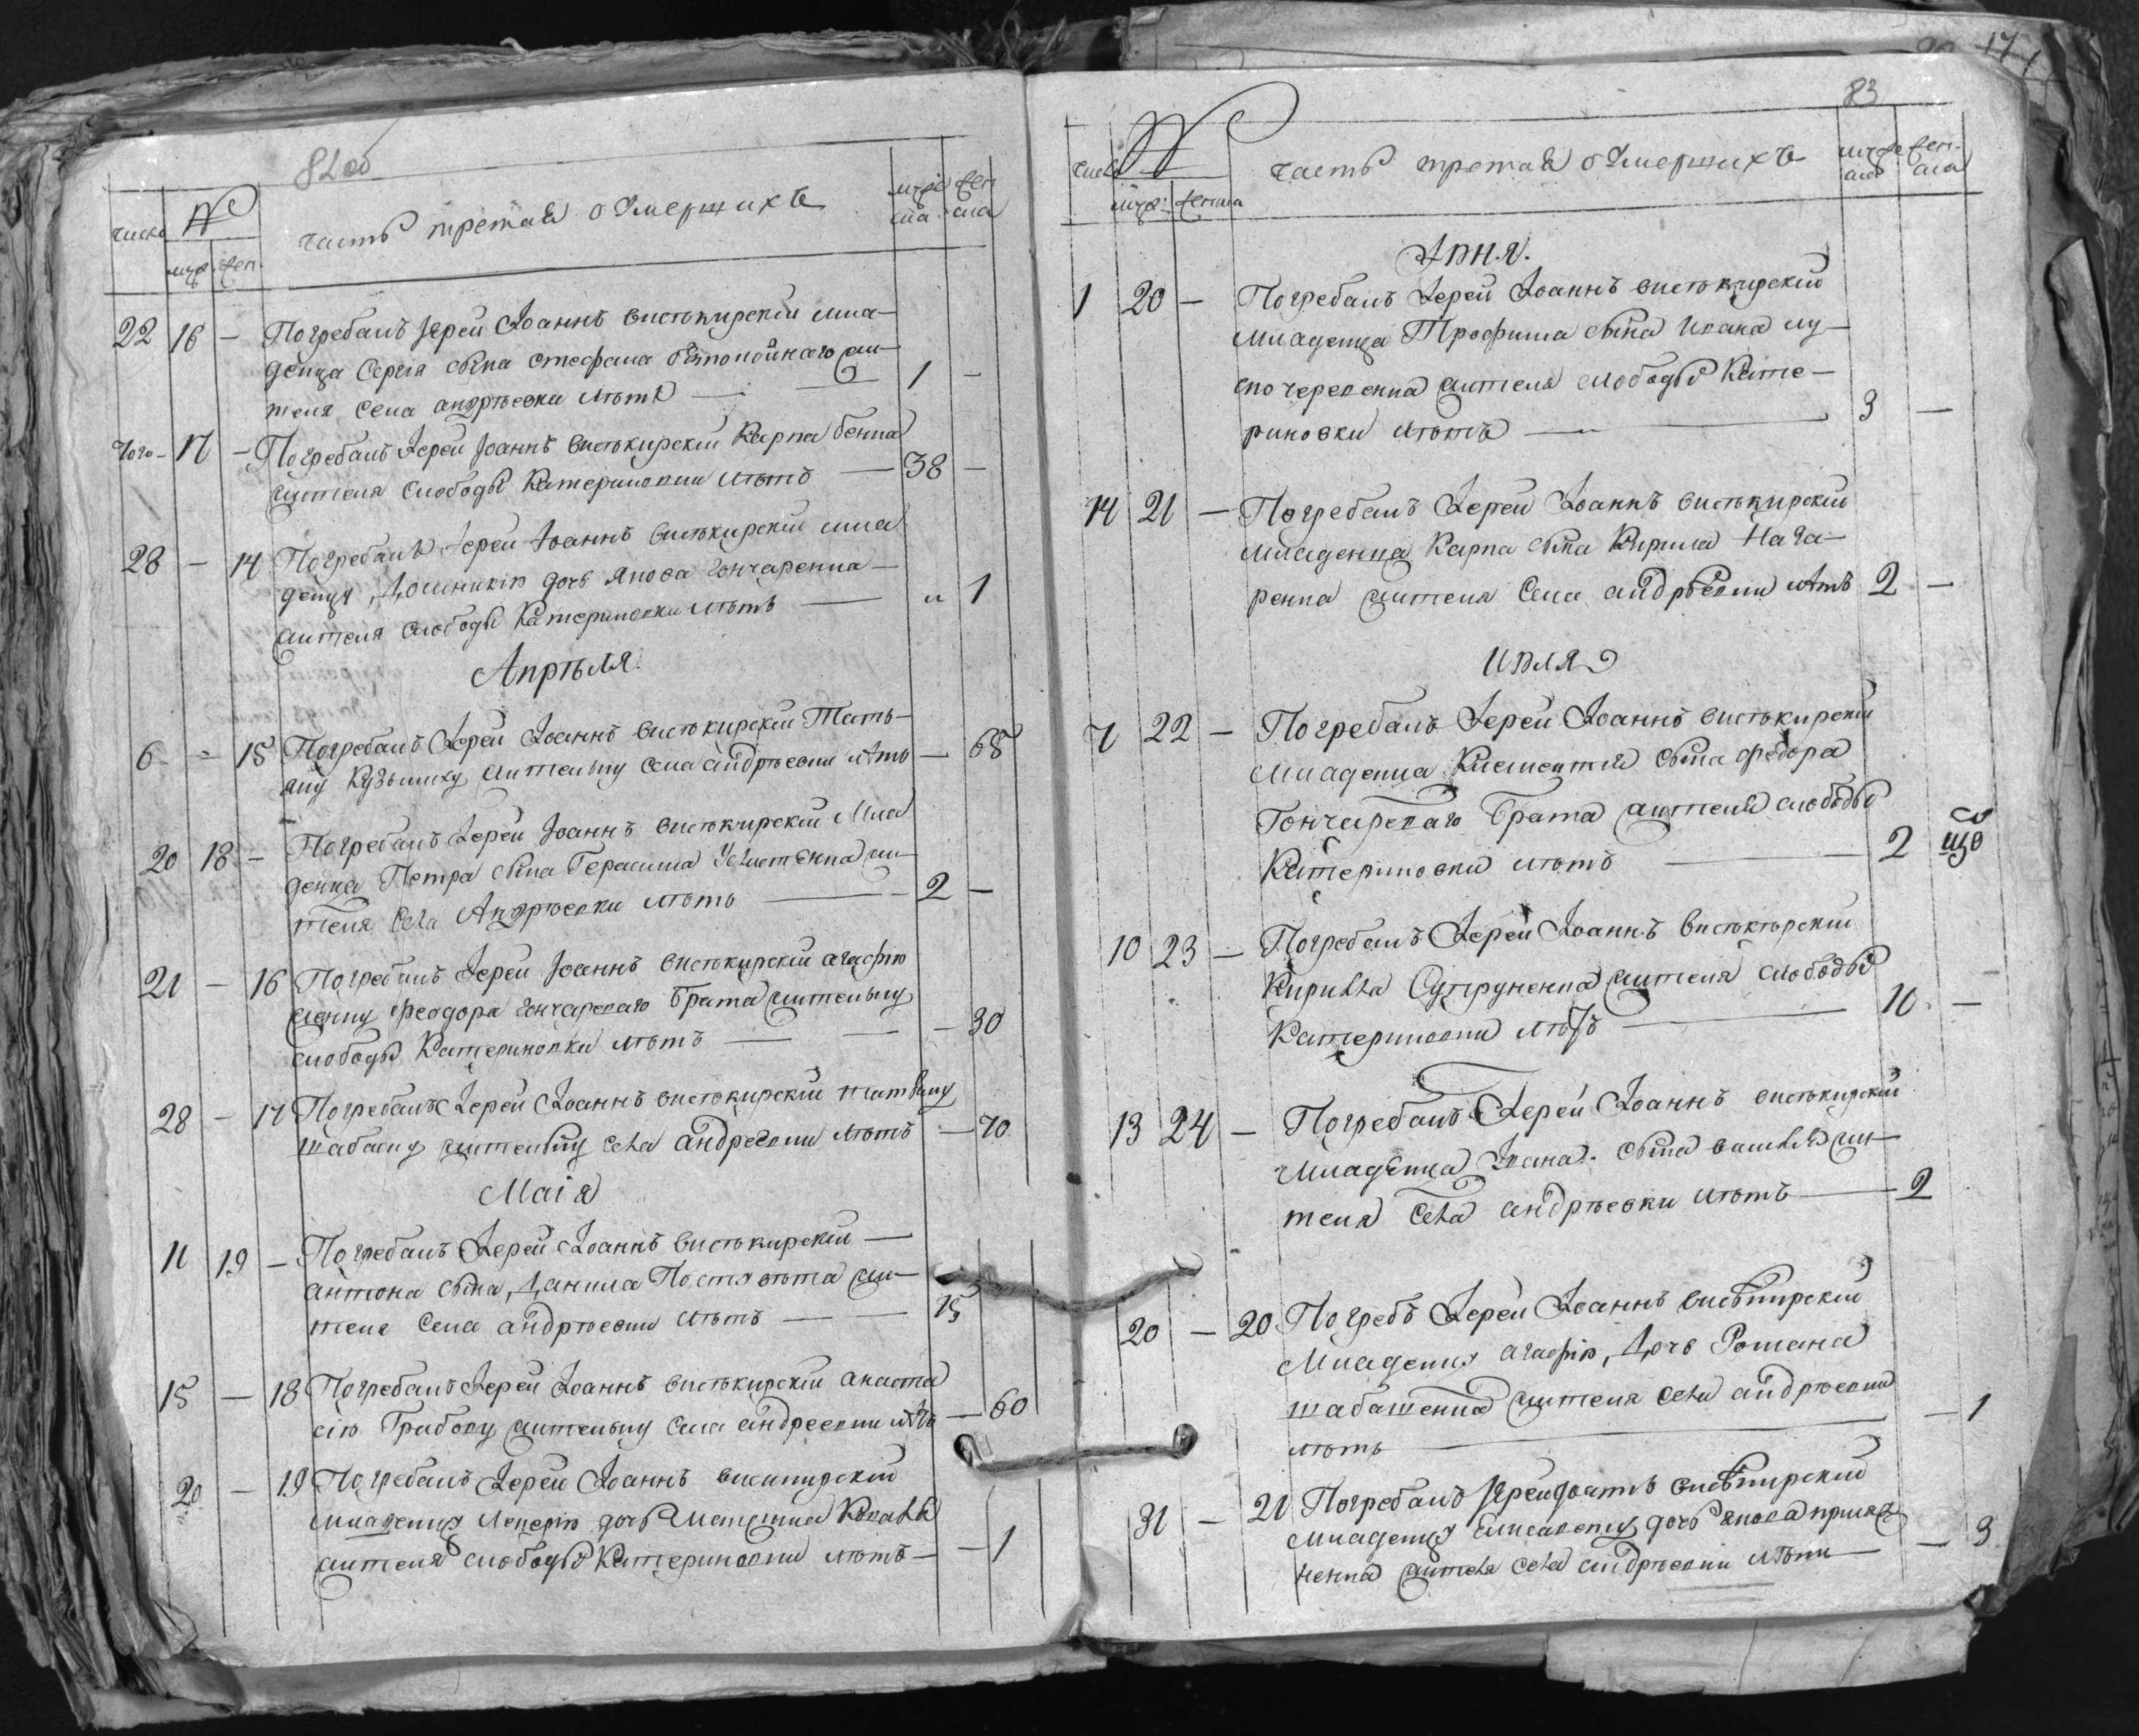 82об
число № часть третая о Умершихъ муже ска жен ска
муж. жен.
22 16 — Погребалъ Іерей Іоаннъ вислокирскій мла-
денца Сергія сына стефана жи-
теля села андрѣевки лѣтъ — 1 —
того — 17 — Погребалъ Іерей Іоаннъ вислокирскій Карпа
жителя слободы Катериновки лѣтъ — 38 —
28 — 14 Погребалъ Іерей Іоаннъ вислокирскій мла
денцу Домникію дочь Якова Гончаренка
жителя слободы Катериновки лѣтъ — „ 1
Апрѣля.
6 — 15 Погребалъ Іерей Іоаннъ вислокирскій Тать-
яну Кузьмиху жительну села андрѣевки лѣтъ — 68
20 18 — Погребалъ Іерей Іоаннъ вислокирскій мла
денца Петра сына Герасима жи-
теля села Андрѣевки лѣтъ — 2 —
21 — 16 Погребалъ Іерей Іоаннъ вислокирскій агафію
жену феодора гончарскаго брата жительну
слободы Катериновки лѣтъ — — 30
28 — 17 Погребалъ Іерей Іоаннъ вислокирскій татьяну
шабашу жительну села андреевки лѣтъ — 70
Маія
11 19 — Погребалъ Іерей Іоаннъ вислокирскій —
антона сына Данила жи-
теля села андрѣевки лѣтъ — 15
15 — 18 Погребалъ Іерей Іоаннъ вислокирскій анаста
сію Грибову жительну села андреевки лѣтъ — 60
20 — 19 Погребалъ Іерей Іоаннъ
младенца дочь Коваля
жителя слободы Катериновки лѣтъ — — 1
83
число № часть третая о Умершихъ муже ска жен- ска
муж: женска
Іюня.
1 20 — Погребалъ Іерей Іоаннъ вислокирскій
младенца Трофима сына Ивана
жителя слободы Кате-
риновки лѣтъ — 3 —
14 21 — Погребалъ Іерей Іоаннъ вислокирскій
младенца Карпа сына Кирила Нага-
ренка жителя села андрѣевки лѣтъ 2 —
Июля
7 22 — Погребалъ Іерей Іоаннъ вислокирскій
младенца Климентія сына федора
Гончарскаго брата жителя слободы
Катериновки лѣтъ — 2
10 23 — Погребалъ Іерей Іоаннъ вислокирскій
Кирила Супруненка жителя слободы
Катериновки лѣтъ — 11 —
13 24 — Погребалъ Іерей Іоаннъ вислокирскій
младенца Ивана сына жи-
теля села андрѣевки лѣтъ — 2
20 — 20 Погребъ Іерей Іоаннъ
младенцу агафію дочь Романа
шабашенка жителя села андрѣевки
лѣтъ — — 1
31 — 21 Погребалъ Іерей Іоаннъ
младенцу Елисавету дочь якова
жителя села андрѣевки лѣтъ — — 3